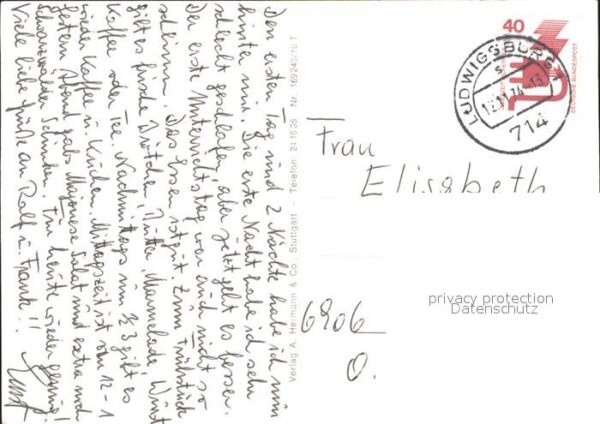 Den ersten Tag und 2 Nächte habe ich nun
hinter mir. Die erste Nacht habe ich sehr
schlecht geschlafen, aber jetzt geht es besser.
Der erste Unterrichtstag war auch nicht so
schlimm. Das Essen ist gut. Zum Frühstück
gibt es frische Brötchen, Butter, Marmelade, Wurst
Kaffee oder Tee. Nachmittags um ½ 3 gibt es
wieder Kaffee u. Kuchen. Mittagszeit ist von 12 - 1
gestern Abend gabs Majonese Salat und extra noch
Schwarzwälder Schinken. Für heute wieder genug!
Viele liebe Grüße an Ralf u. Frank!!
Verlag A. Heumann & Co., Stuttgart - Telefon 24 16 35 Nr. 169240/10 T
40
DEUTSCHE BUNDESPOST
LUDWIGSBURG 1
12.11.74-13
714
Frau
Elisabeth
6906
O.
privacy protection
Datenschutz